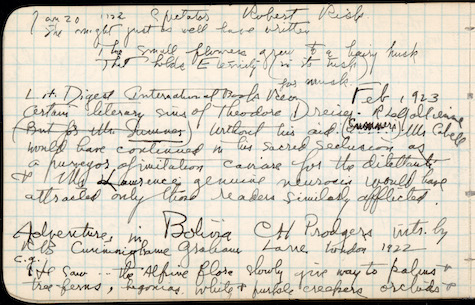 Jan 20 1922 Spectator Robert
He might just as well have written
The small flowers grew to a hairy husk
That holds Eternity (in its tusk)
for musk.
Lit. Digest International Book Review Feb, 1923
Certain literary sins of Theodore Dreiser
(But for Mr. Sumner) Without his aid (Sumner's) Mr Cabell
would have continued in his sacred seclusion as
a purveyor of imitation caviare for the dilettante
& Mr Lawrence's genuine neurosis would have
attracted only those readers similarly afflicted.
Adventures in Bolivia CH Prodgers intr. by
RB Cunninghame Graham Lane London 1922
e.g.
He saw -- the Alpine flora slowly give way to palms &
tree-ferns, begonias, white & purple creepers orchids &